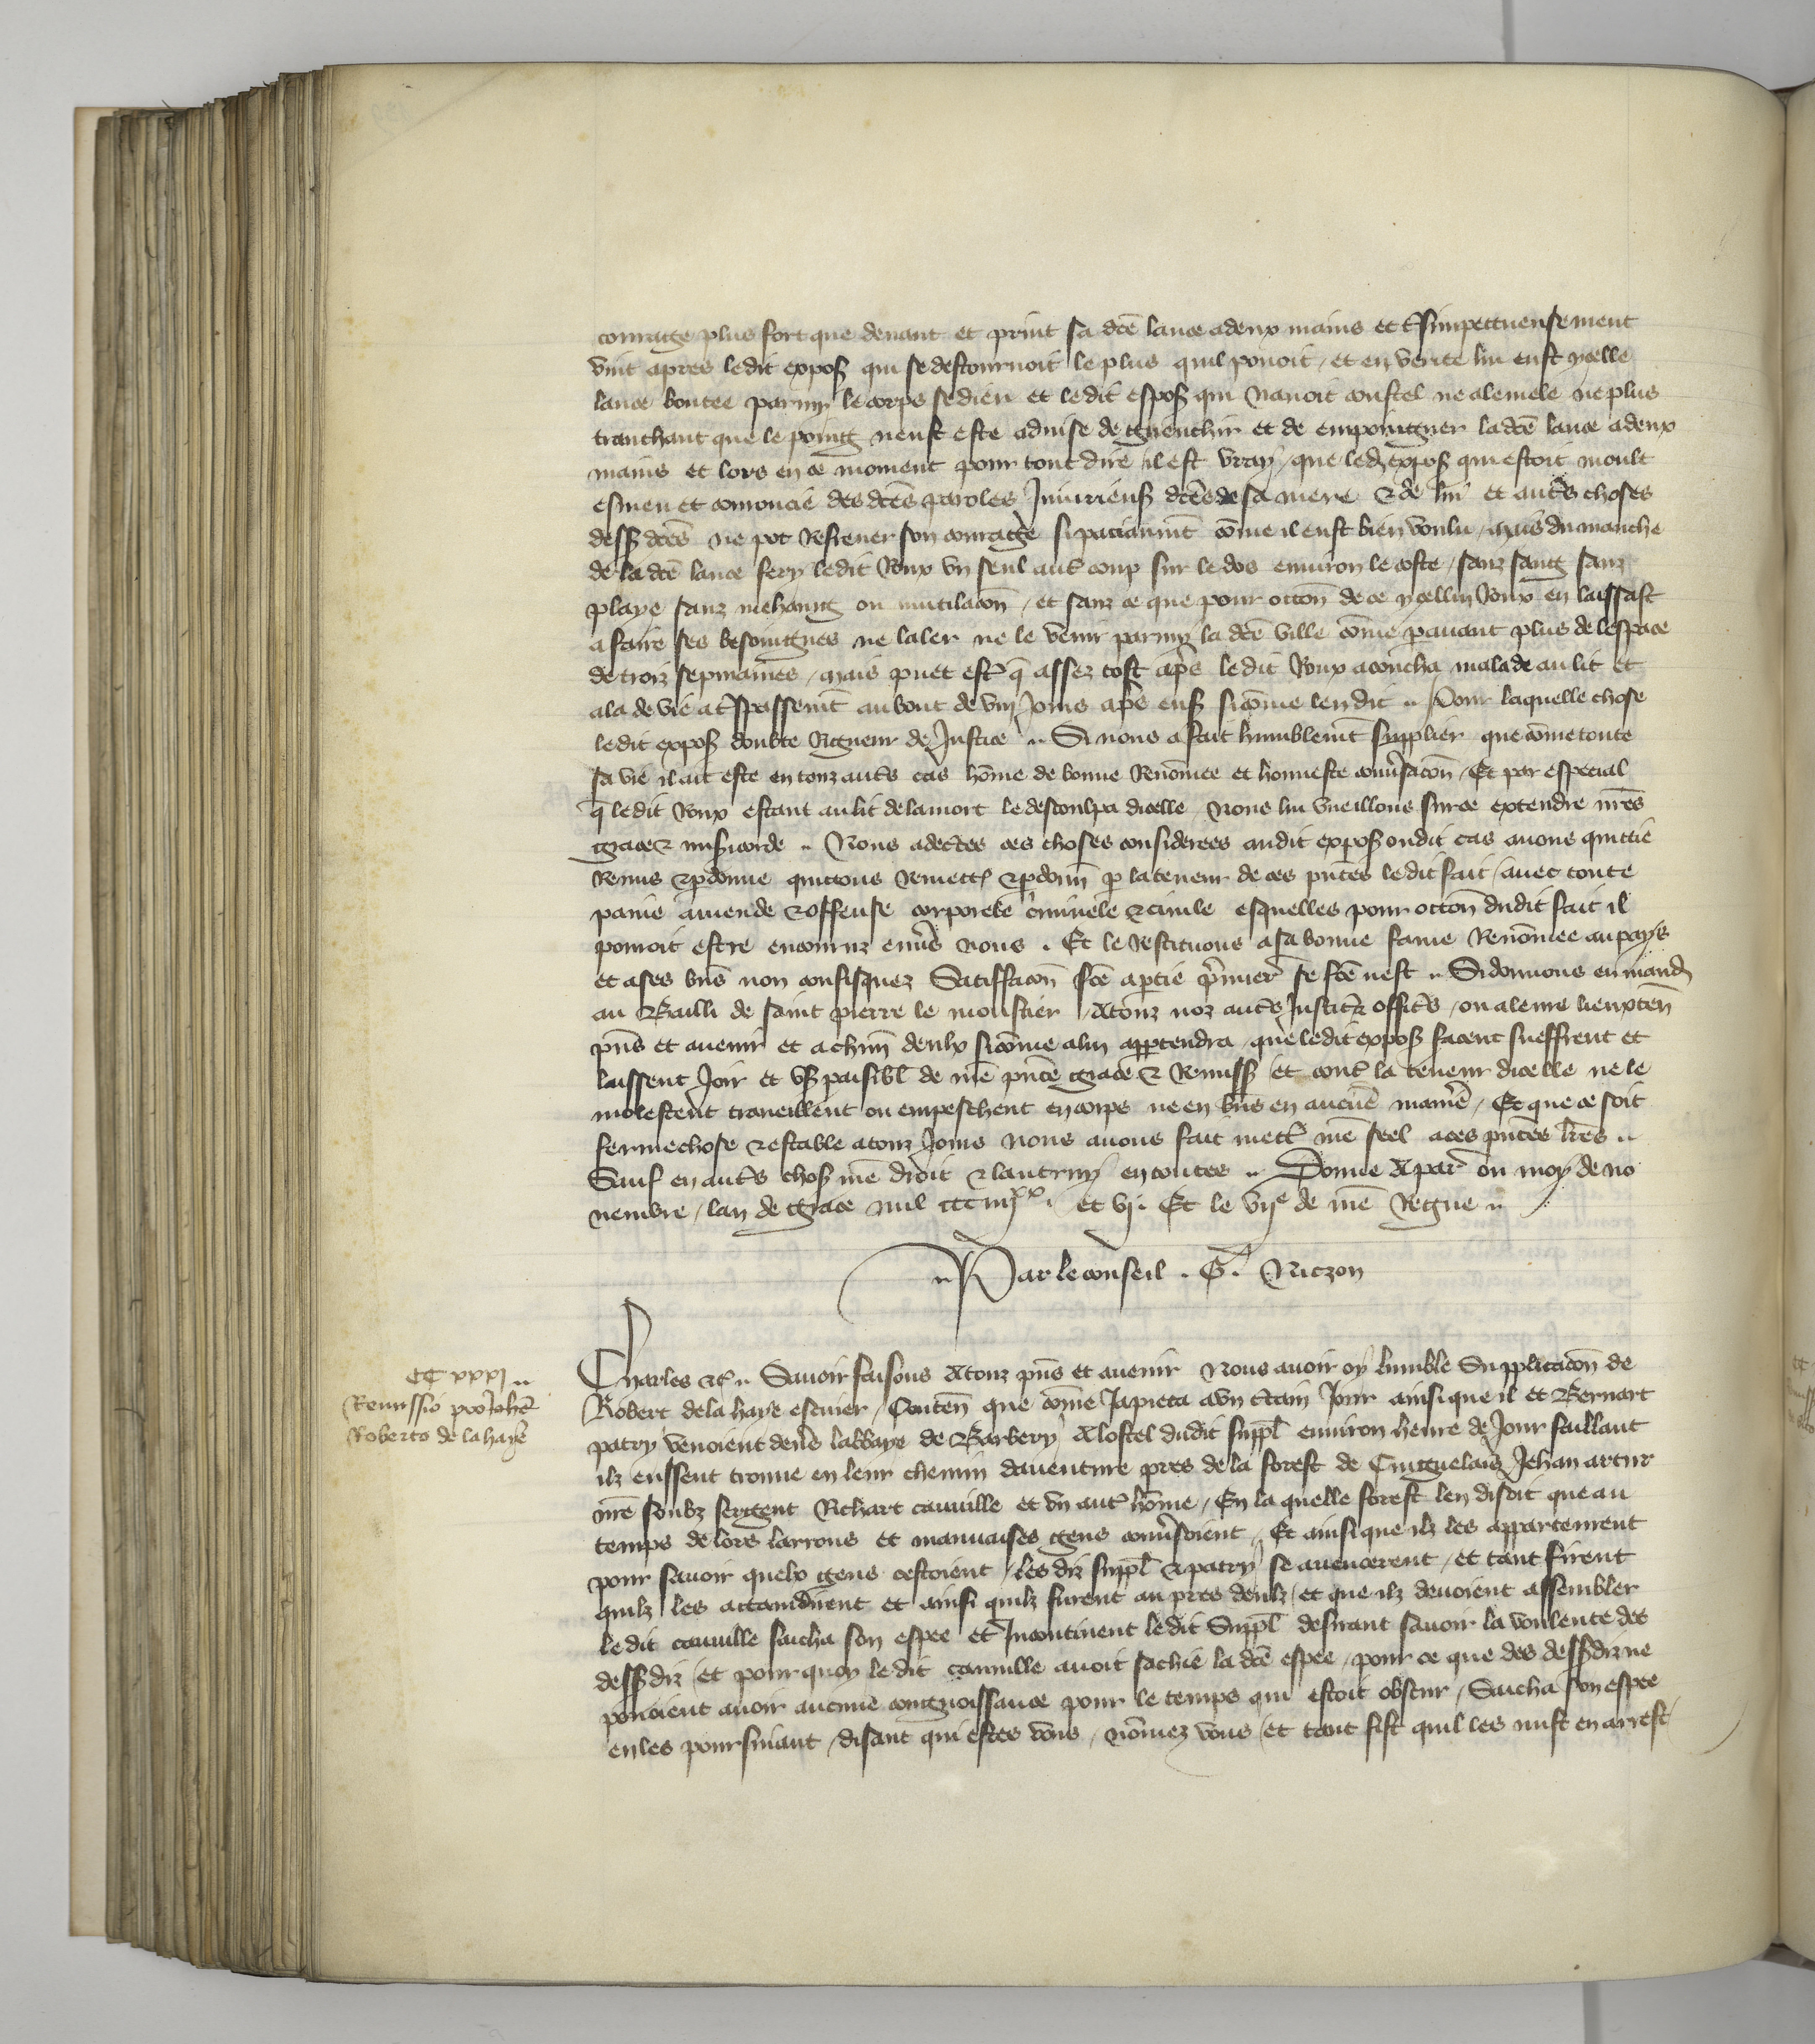 courage plus fort que devant et print sa dcē lance a deux mains et tˢimpettueusement
vint apres ledit exposˢ qui se destournoit le plus quil povoit / et en verite lui eust ycelle
lance boutee parmy le corps se dieu et ledit exposˢ qui navoit coustel ne alemele ne plus
tranchant que le poing neust este advise de guenchir et de empoingner la dcē lance a deux
mains et lors en ce moment pour tout dire il est vray / que led exposˢ qui estoit moult
esmeu et des dcēs paroles Injurieusˢ dcēs de sa mere & de lui et autˢs choses
dessˢ dcēs ne pot Refrener son courage si paciāmt cōme il eust bien voulu / mais du manche
de la dcē lance fery ledit Roux un seul autˢ coup sur le dos environ le coste / sanz sang sanz
playe sanz mehaing ou mutilacōn / et sanz ce que pour occōn de ce ycellui Roux en laissast
a faire ses besoingnes ne laler ne le venir parmy la dcē ville cōme pavant plus de lespace
de troiz sepmaines / mais puet estˢ q̄ assez tost apˢs ledit Roux acoucha malade au lit et
ala de vie a tˢspassemt au bout de viij Jours apˢs ensˢ sicōme len dit .. Pour laquelle chose
ledit exposˢ doubte Rigueur de Justice .. Si nous a fait humblemt supplier que cōme toute
sa vie il ait este en touz autˢs cas hōme de bonne Renōmee et honneste convˢsacōn / Et par especial
q̄ ledit Roux estant au lit de la mort le descoulpa dicelle Nous lui vueillons sur ce extendre nrēs
grace & misˢicorde .. Nous adcētes ces choses considerees audit exposˢ oudit cas avons quittie
Remis & pdonne quictons Remettˢ & pdonn̄ p la teneur de ces pn̄tes ledit fait / avec toute
paine amende & offense corporele cˢiminele & civile esquelles pour occōn dudit fait il
povoit estre encouruz envˢs nous . Et le Restituons a sa bonne fame Renōmee au pays
et a ses bn̄s non confisquez Satiffacōn fcē a ptie pˢmierˢ se fcē nest .. Si donnons en mandˢ
au Bailli de saint pierre le moustier / & a touz noz autˢs Justicˢ & officˢs / ou a leurs lieuxten̄
pn̄s et avenir et a chūn deulx sicōme a lui apptendra que ledit exposˢ facent sueffrent et
laissent Joir et usˢ paisibl de nrē pn̄te grace & Remissˢ / et contˢ la teneur dicelle ne le
molestent traveillent ou empeschent en corps ne en bn̄s en aucūe maniˢe / Et que ce soit
ferme chose & estable a touz Jours Nous avons fait mettˢ nrē seel a ces pn̄tes lrēs ..
Sauf en autˢs chosˢ nrē droit & lautruy en toutes .. Donne a Parˢ ou moys de no
vembre / lan de grace mil CCC iiijxx . et vj . Et le vije de nrē Regne ..
.. Par le conseil . G . Riczon
CC xxxj ..
Remissio pro
Roberto de la haye
Charles &cˢ .. Savoir faisons a touz pn̄s et avenir Nous avoir oy humble Supplicacōn de
Robert de la haye escuier / Conten̄ que cōme Ja pieca a un cˢtain Jour ainsi que il et Bernart
patry venoient devˢs labbaye de Barbery a lostel dudit suppl̄ environ heure de Jour faillant
ilz eussent trouve en leur chemin daventure pres de la forest de Cinguelaiz Jehan artur
nrē soubz sergent Richart cauville et un autˢ hōme / En la quelle forest len disoit que au
temps de lors larrons et mauvaises gens convˢsoient / Et ainsi que ilz les
pour savoir quelx gens cestoient / les diz suppl̄ & patry se avancerent / et tant firent
quilz les attaindirent et ainsi quilz furent aupres deulz / et que ilz devoient assembler
le dit cauville sacha son espee et Incontinent ledit Suppl̄ desirant savoir la voulente des
dessˢ diz / et pour quoy ledit cauville avoit sachie la dcē espee / pour ce que des dessˢ diz ne
povoient avoir aucune congnoissance pour le temps qui estoit obscur / Sacha son espee
en les poursuiant / disant qui estes vous / nōmez vous / et tant fist quil les mist en arrest